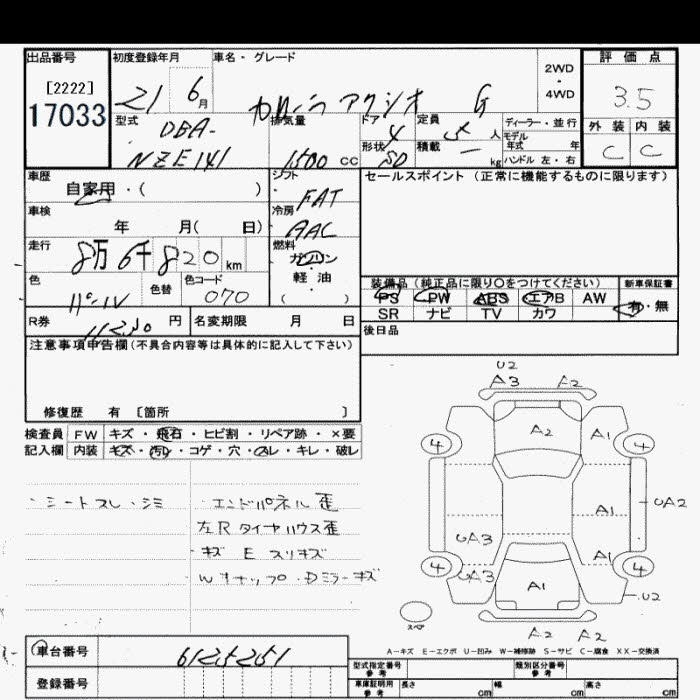 出品番号 初度登録年月 車名・グレード 2WD・4WD 評価点
[2222]
17033
21 6月 カローラアクシオ G 3.5
型式 DBA-NZE141 排気量 1500 cc ドア 4 定員 5 人 ディーラー・並行
形状 SD 積載 - kg モデル年式 年 ハンドル 左・右
外装 内装
C C
車歴 自家用・( ) シフト FAT セールスポイント(正常に機能するものに限ります)
車検 年 月( 日) 冷房 AAC
走行 8万6千820km 燃料 ガソリン 軽油 ( )
色 パール 色替 色コード 070
装備品(純正品に限り○をつけてください) 新車保証書
PS PW ABS エアB AW 有・無
SR ナビ TV カワ
R券 11250 円 名変期限 月 日 後日品
注意事項申告欄(不具合内容等は具体的に記入して下さい)
修復歴 有 [箇所 ]
検査員 FW キズ・飛石・ヒビ割・リペア跡・×要
記入欄 内装 キズ・汚レ・コゲ・穴・スレ・キレ・破レ
・シートスレ・シミ
・エンドパネル歪
左Rタイヤハウス歪
・キズ E スリキズ
Wナップ・Dミラーキズ
U2
A3 A2
A2 A1
4 4
A1 UA2
UA3
A1
4 4
UA3 A1 U2
スペア
A2 A2
A-キズ E-エクボ U-凹み W-補修跡 S-サビ C-腐食 XX-交換済
車台番号 6125251
登録番号
型式指定番号 参考 類別区分番号 参考
車庫証明用 参考 長さ cm 幅 cm 高さ cm